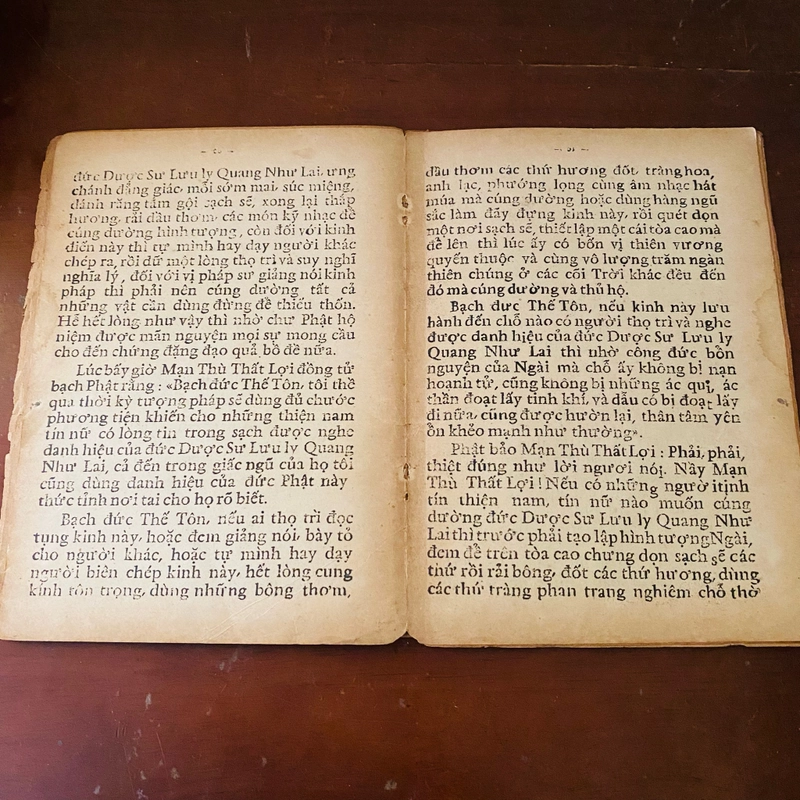 đức Dược Sư Lưu ly Quang Như Lai, ưng
chánh đẳng giác, mỗi sớm mai, súc miệng,
đánh răng tắm gội sạch sẽ, xong lại thắp
hương, rải dầu thơm, các món kỹ nhạc để
cúng dường hình tượng, còn đối với kinh
điển này thì tự mình hay dạy người khác
chép ra, rồi dữ một lòng thọ trì và suy nghĩ
nghĩa lý, đối với vị pháp sư giảng nói kinh
pháp thì phải nên cúng dường tất cả
những vật cần dùng đừng để thiếu thốn.
Hễ hết lòng như vậy thì nhờ chư Phật hộ
niệm được mãn nguyện mọi sự mong cầu
cho đến chứng đặng đạo quả bồ đề nữa.
Lúc bấy giờ Mạn Thù Thất Lợi đồng tử
bạch Phật rằng : «Bạch đức Thế Tôn, tôi thề
qua thời kỳ tượng pháp sẽ dùng đủ chước
phương tiện khiến cho những thiện nam
tín nữ có lòng tin trong sạch được nghe
danh hiệu của đức Dược Sư Lưu ly Quang
Như Lai, cả đến trong giấc ngũ của họ tôi
cũng dùng danh hiệu của đức Phật này
thức tỉnh nơi tai cho họ rõ biết.
Bạch đức Thế Tôn, nếu ai thọ trì đọc
tụng kinh này, hoặc đem giảng nói, bày tỏ
cho người khác, hoặc tự mình hay dạy
người biên chép kinh này, hết lòng cung
kính tôn trọng, dùng những bông thơm,
dầu thơm các thứ hương đốt, tràng hoa,
anh lạc, phướng lọng cùng âm nhạc hát
múa mà cúng dường hoặc dùng hàng ngũ
sắc làm đãy đựng kinh này, rồi quét dọn
một nơi sạch sẽ, thiết lập một cái tòa cao mà
để lên thì lúc ấy có bốn vị thiên vương
quyến thuộc và cùng vô lượng trăm ngàn
thiên chúng ở các cõi Trời khác đều đến
đó mà cúng dường và thủ hộ.
Bạch đức Thế Tôn, nếu kinh này lưu
hành đến chỗ nào có người thọ trì và nghe
được danh hiệu của đức Dược Sư Lưu ly
Quang Như Lai thì nhờ công đức bổn
nguyện của Ngài mà chỗ ấy không bị nạn
hoạnh tử, cũng không bị những ác quỉ, ác
thần đoạt lấy tinh khí, và dẫu có bị đoạt lấy
đi nữa, cũng được hườn lại, thân tâm yên
ổn khẻo mạnh như thường».
Phật bảo Mạn Thù Thất Lợi : Phải, phải,
thiệt đúng như lời ngươi nói. Nầy Mạn
Thù Thất Lợi ! Nếu có những người itịnh
tín thiện nam, tín nữ nào muốn cúng
dường đức Dược Sư Lưu ly Quang Như
Lai thì trước phải tạo lập hình tượng Ngài,
đem để trên tòa cao chưng dọn sạch sẽ các
thứ rồi rải bông, đốt các thứ hương, dùng
các thứ tràng phan trang nghiêm chỗ thờ